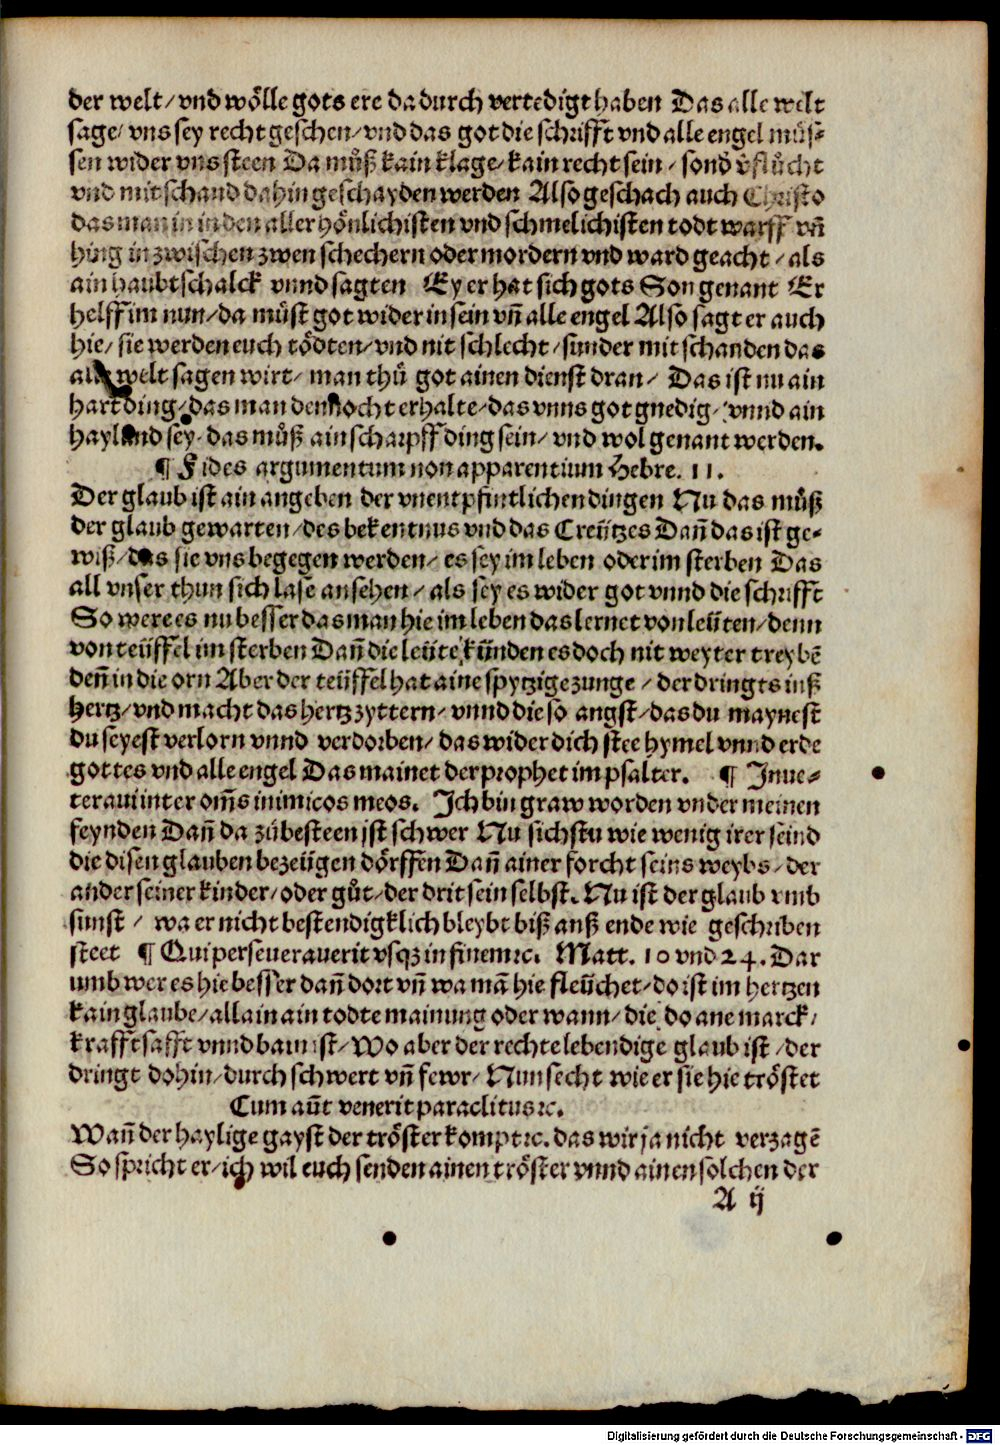 der welt/vnd wölle gots ere dadurch vertedigt haben Das alle welt
sage/vns sey recht geschen/vnd das got die schrifft vnd alle engel müs-
sen wider vns steen Da můß kain klage/kain recht sein/ sond v̄flůcht
vnd mit schand dahin geschayden werden Also geschach auch Christo
das man in in den aller hönlichisten vnd schmelichisten todt warff vn̄
hing in zwischen zwen schechern oder mordern vnd ward geacht/als
ain haubtschalck vnnd sagten Ey er hat sich gots Son genant Er
helff im nun/da můst got wider in sein vn̄ alle engel Also sagt er auch
hie/sie werden euch tödten/vnd nit schlecht/sunder mit schanden das
welt sagen wirt/man thů got ainen dienst dran/ Das ist nu ain
hart ding/das man dennocht erhalte/das vnns got gnedig/vnnd ain
hayland sey/das můß ain scharpff ding sein/vnd wol genant werden.
¶ Fides argumentum non apparentium Hebre. 11.
Der glaub ist ain angeben der vnentpfintlichen dingen Nu das můß
der glaub gewarten/des bekentnus vnd das Creützes Dan̄ das ist ge-
wiß/das sie vns begegen werden/es sey im leben oder im sterben Das
all vnser thun sich lase ansehen/als sey es wider got vnnd die schrifft
So were es nu besser das man hie im leben das lernet von leüten/denn
von teüffel im sterben Dan̄ die leüte künden es doch nit weyter treybē
den̄ in die orn Aber der teüffel hat aine spytzige zunge/der dringts inß
hertz/vnd macht das hertz zyttern/vnnd die so angst/das du maynest
du seyest verlorn vnnd verdorben/das wider dich stee hymel vnnd erde
gottes vnd alle engel Das mainet der prophet im psalter. ¶ Inue-
teraui inter om̄s inimicos meos. Ich bin graw worden vnder meinen
feynden Dan̄ da zůbesteen jst schwer Nu sichstu wie wenig irer seind
die disen glauben bezeügen dörffen Dan̄ ainer forcht seins weybs/der
ander seiner kinder/oder gůt/der drit sein selbst. Nu ist der glaub vmb
sunst/ wa er nicht bestendigklich bleybt biß anß ende wie geschriben
steet ¶ Qui perseuerauerit vsqz in finem ꝛc. Matt. 10 vnd 24. Dar
umb wer es hie besser dan̄ dort vn̄ wa mā hie fleüchet/do ist im hertzen
kain glaube/allain ain todte mainung oder wann/die do ane marck/
krafft safft vnnd bain ist/Wo aber der rechte lebendige glaub ist/der
dringt dohin/durch schwert vn̄ fewr/Nun secht wie er sie hie tröstet
Cum aūt venerit paraclitus ꝛc.
Wan̄ der haylige gayst der tröster kompt ꝛc. das wir ja nicht verzagē
So spricht er/ich wil euch senden ainen tröster vnnd ainen solchen der
A ij
Digitalisierung gefördert durch die Deutsche Forschungsgemeinschaft - DFG